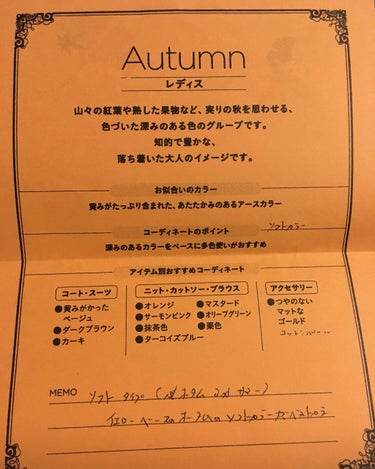 Autumn
レディス
山々の紅葉や熟した果物など、実りの秋を思わせる、
色づいた深みのある色のグループです。
知的で豊かな、
落ち着いた大人のイメージです。
お似合いのカラー
黄みがたっぷり含まれた、あたたかみのあるアースカラー
コーディネートのポイント
ソフトカラー
深みのあるカラーをベースに多色使いがおすすめ
アイテム別おすすめコーディネート
コート・スーツ
●黄みがかった
ベージュ
●ダークブラウン
●カーキ
ニット・カットソー・ブラウス
●オレンジ ●マスタード
●サーモンピンク ●オリーブグリーン
●抹茶色 ●栗色
●ターコイズブルー
アクセサリー
●つやのない
マットな
ゴールド
MEMO ソフトタイプ
イエローベースのオータムのソフトカラーがベスト